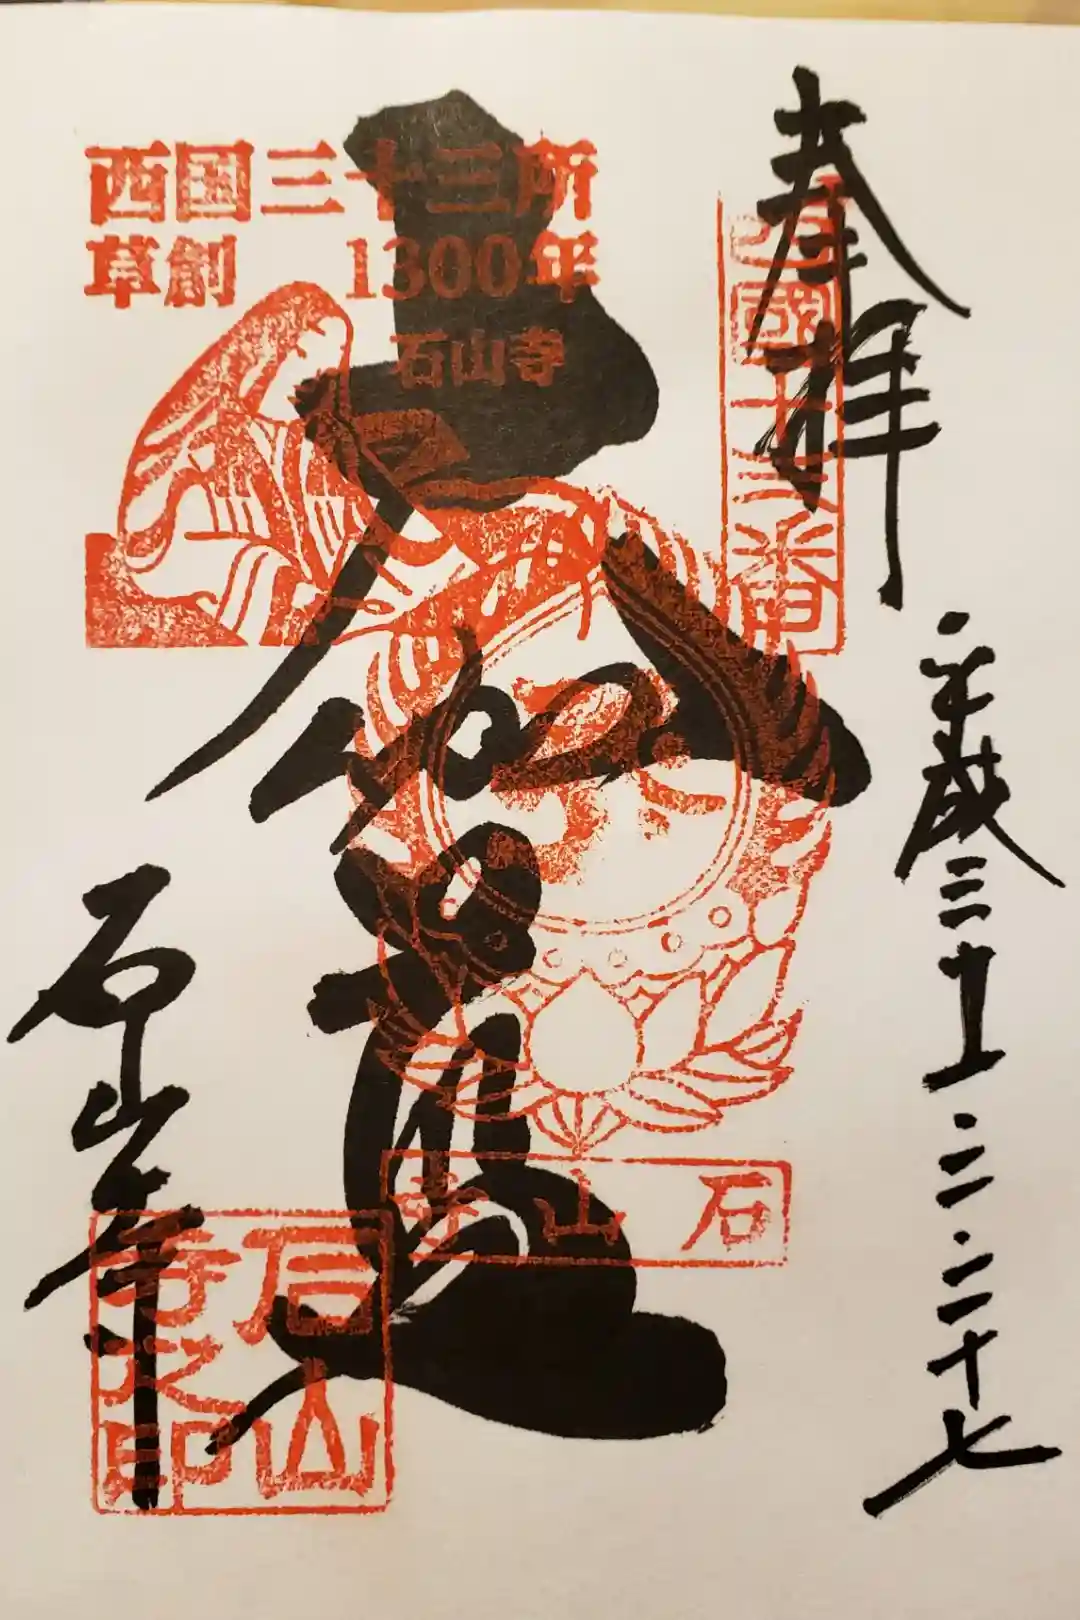 奉拝
西國十三番
平成三十一・二・二十七
大伽藍
西国三十三所
草創 1300年
石山寺
石山寺
石山寺
石山
寺之印